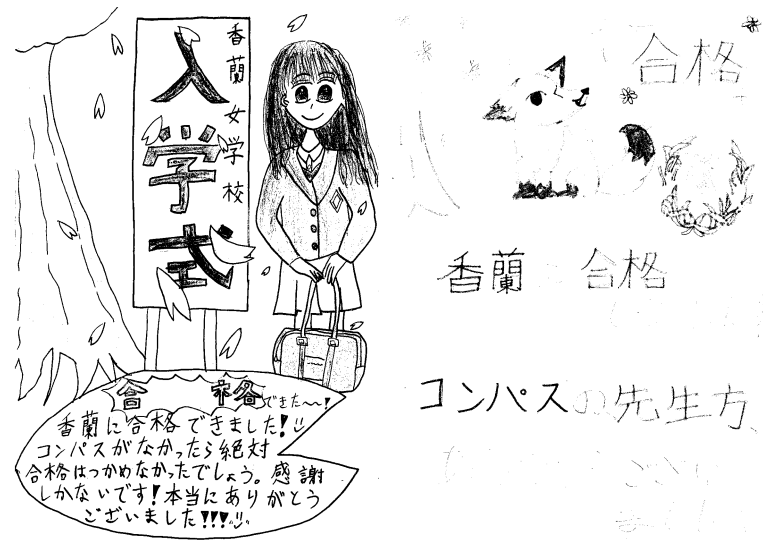 香蘭女学校
入学式
合格できた〜!
香蘭に合格できました!!
コンパスがなかったら絶対
合格はつかめなかったでしょう。感謝
しかないです!本当にありがとう
ございました!!!!!
合格
香蘭 合格
コンパスの先生方、